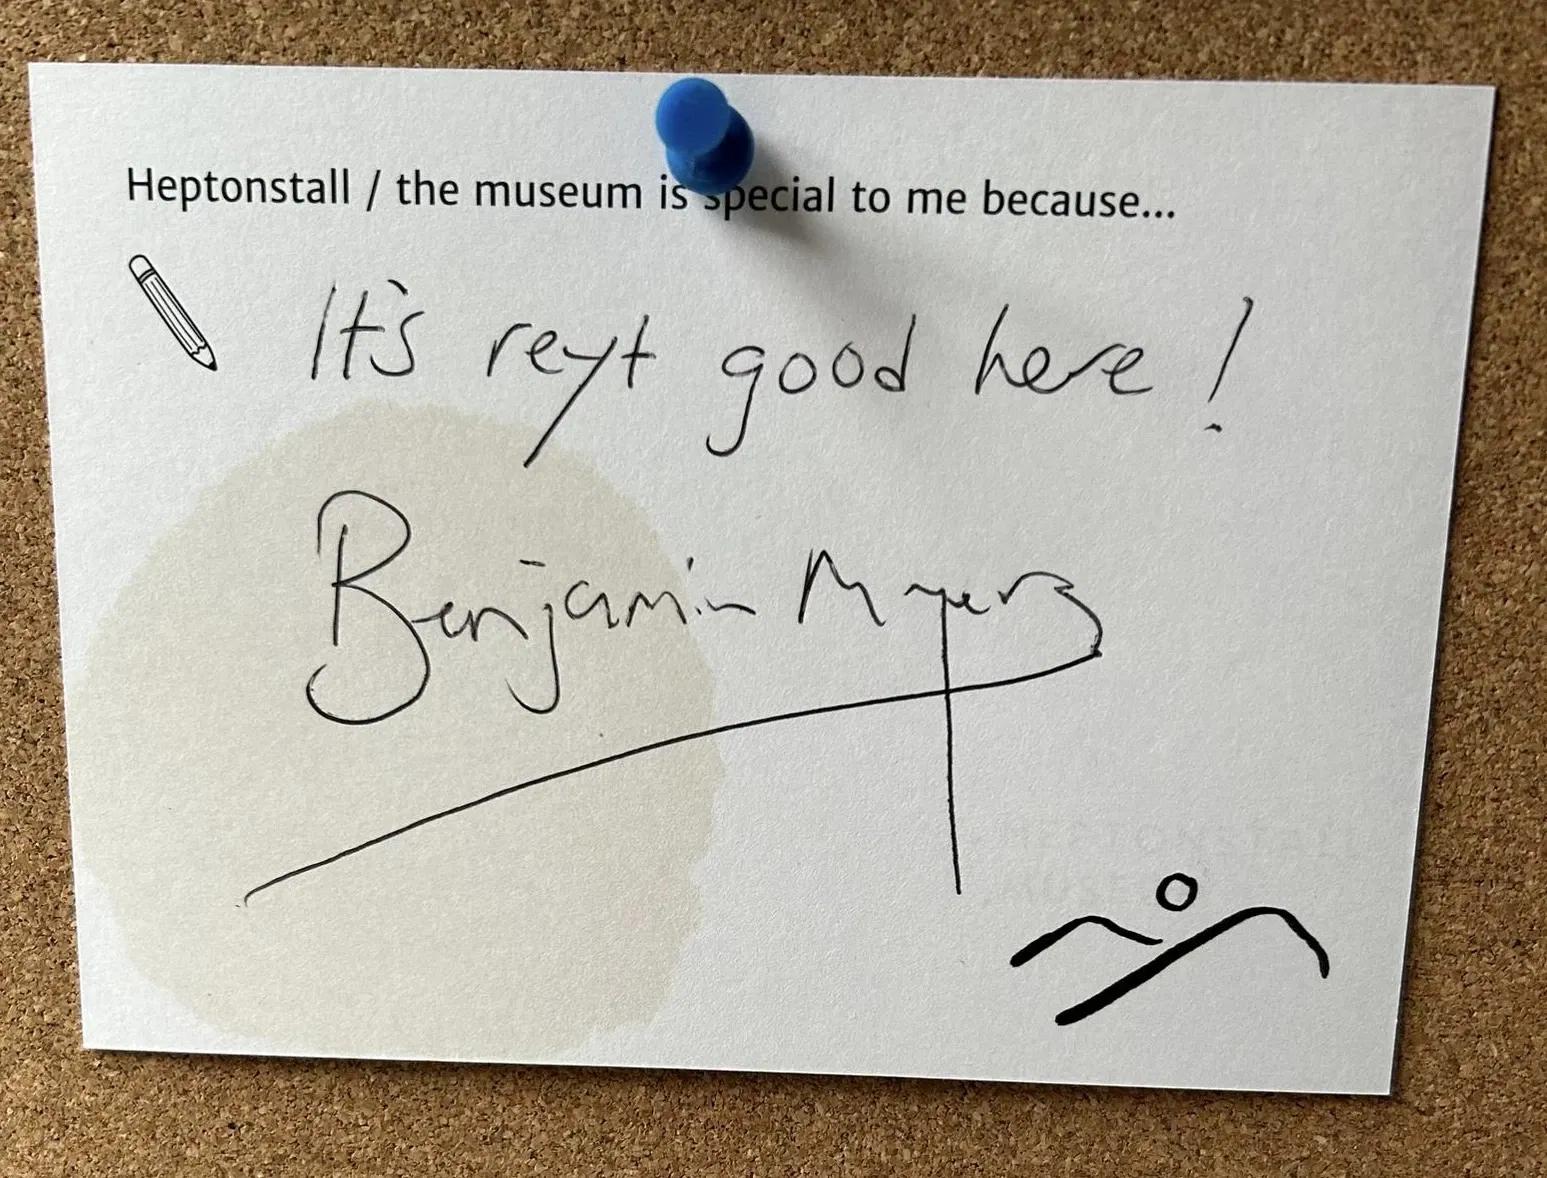 Heptonstall / the museum is special to me because...
It's reyt good here!
Benjamin Myers